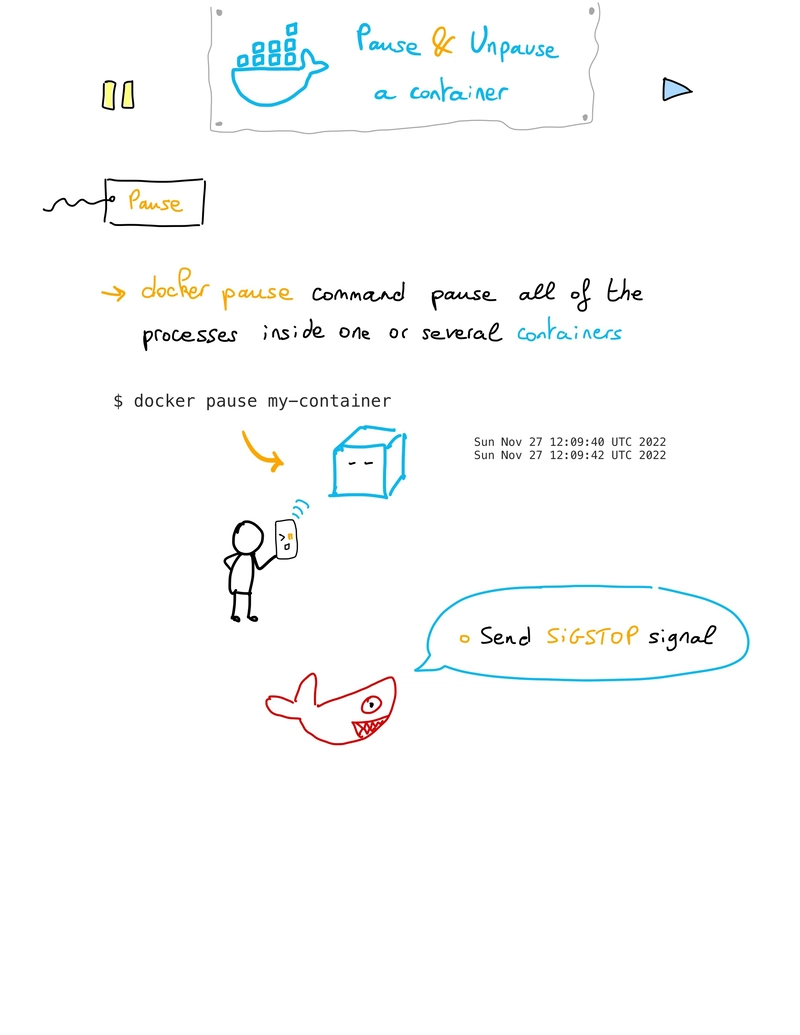 Pause & Unpause
a container
Pause
→ docker pause command pause all of the
processes inside one or several containers
$ docker pause my-container
Sun Nov 27 12:09:40 UTC 2022
Sun Nov 27 12:09:42 UTC 2022
Send SiGSTOP signal